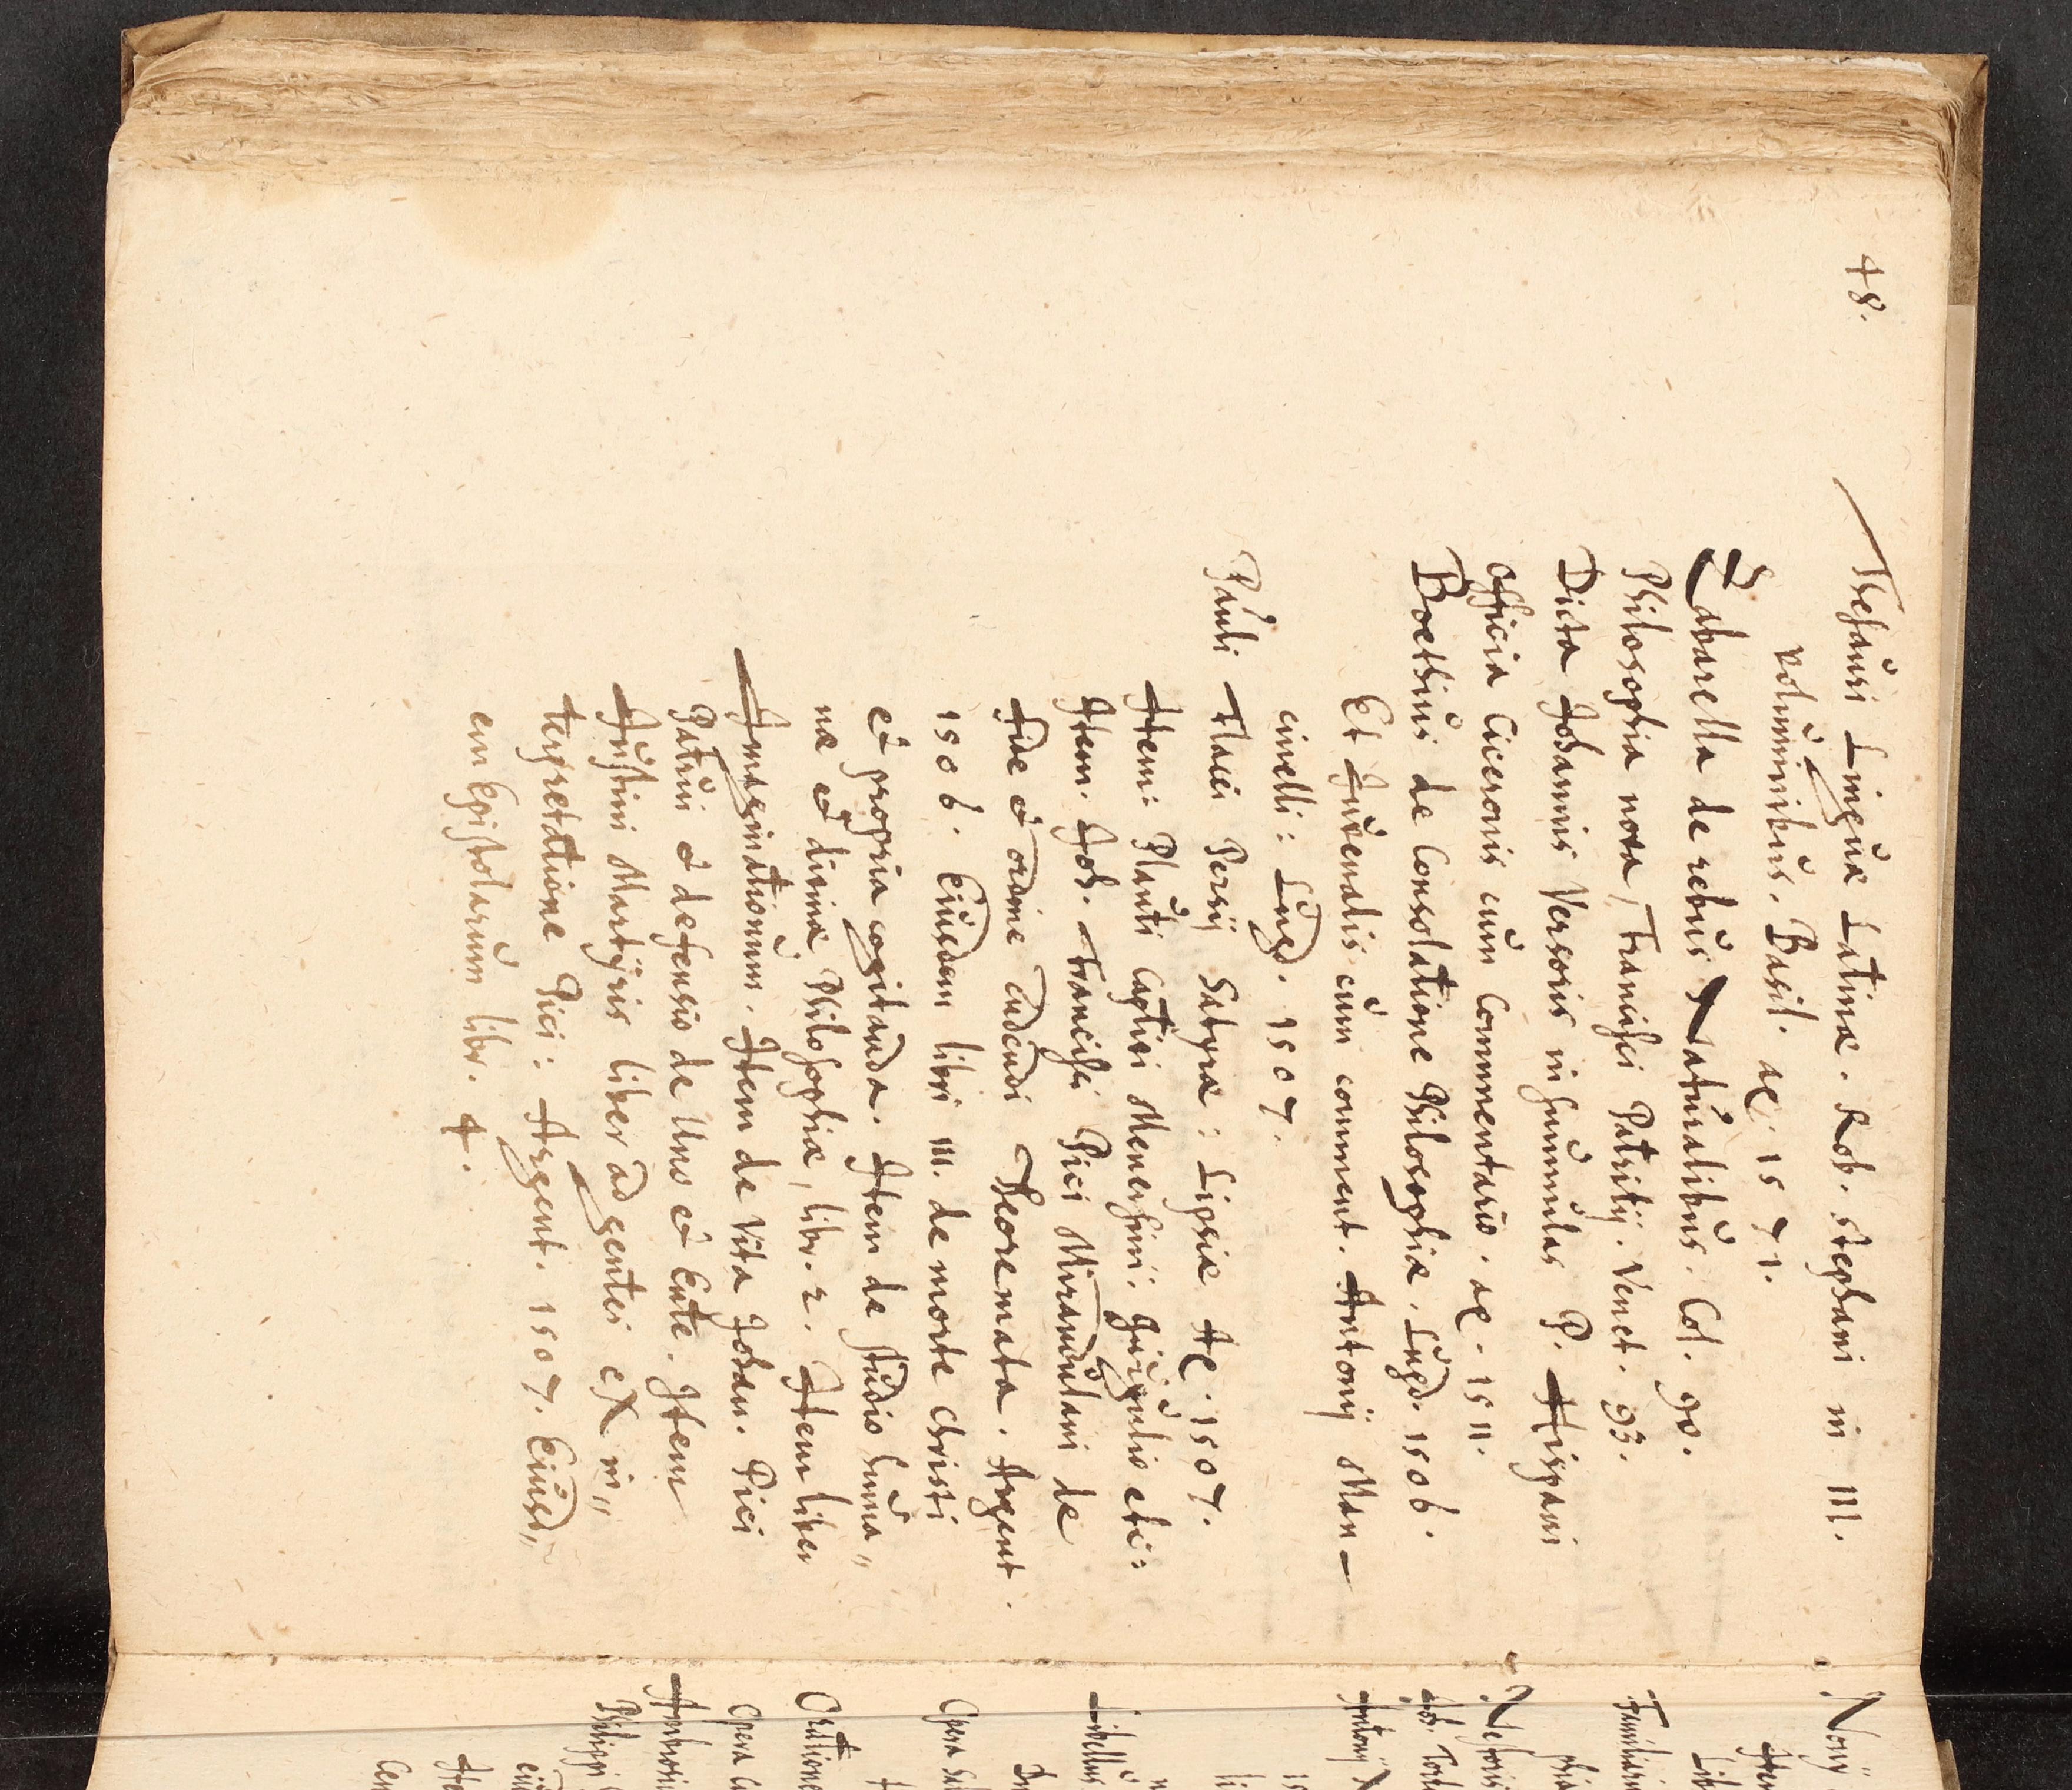 48.
Thesauri Linguæ Latinæ. Rob. Stephani in III.
voluminibus. Basil. aę 1571.
Zabarella de rebus Naturalibus. Col. 90.
Philosophia nova / Francisci Patritij. Venet. 93.
Dicta Johannis Versoris in summulas P. Hispani
Officia Ciceronis cum Commentario. aę. 1511.
Boethius de Consolatione Philosophiæ. Lugd. 1506.
Et Juvenalis cum comment. Antonij Man-
cinelli: Lugd. 1507.
Pauli Flacci Persij Satyræ: Lipsiæ Aę. 1507.
Item: Plauti Captivi
Item. Joh. Francisci Pici Mirandulani de
fide et ordine credendi Theoremata. Argent.
1506. Eiusdem libri III. de morte Christi
et propria cogitanda. Item de studio huma„
næ et divinæ Philosophiæ, libr. 2. Item liber
Imaginationum. Item de Vita Johan. Pici
Patrui et defensio de Uno et Ente. Item
Justini Martyris liber ad gentes eX in„
terpretatione Pici: Argent. 1507. Eiusd„
em Epistolarum libr. 4.
Nony
Item
Lib
Familiari
Nestoris
Joh.
Antonij
Libellus
Opera
Oratione
Opera
Ambrosi
Philippi